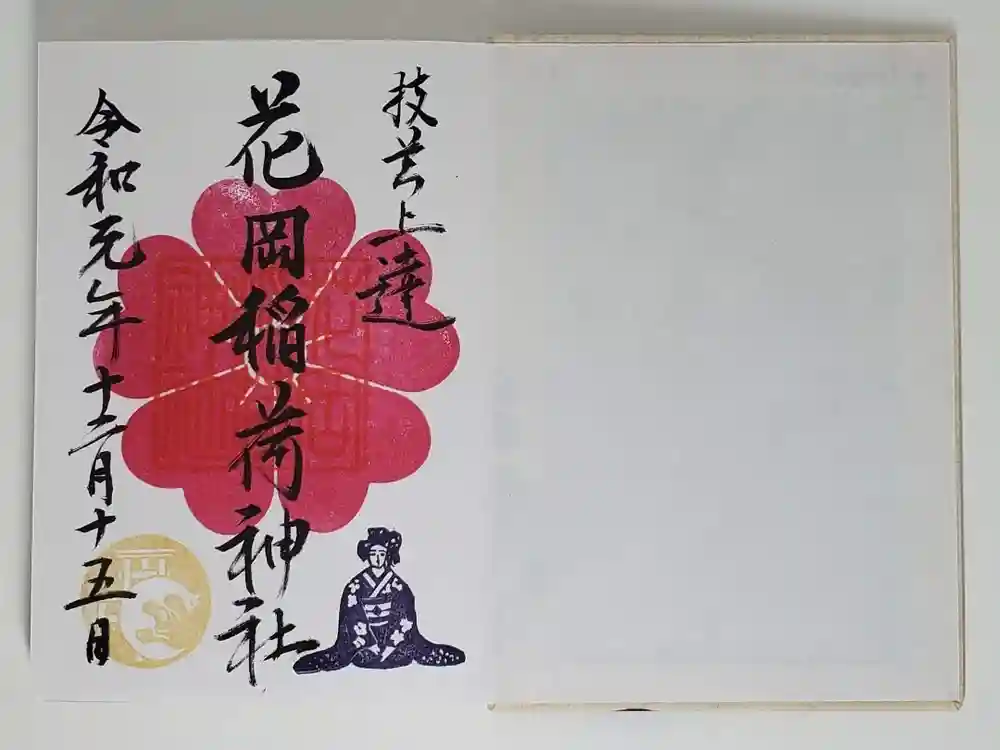 技芸上達
花岡稲荷神社
令和元年十二月十五日